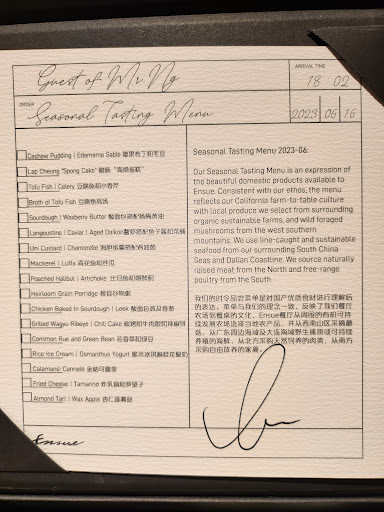 Guest of Mr Ng
ARRIVAL TIME
18 02
ORDER
Seasonal Tasting Menu
2023 06 16
Cashew Pudding | Edamame Sable 腰果布丁和毛豆
Lap Cheung "Spong Cake" 腊肠 "海绵蛋糕"
Tofu Fish | Celery 豆腐鱼和小香芹
Broth of Tofu Fish 豆腐鱼高汤
Sourdough | Wasberry Butter
Langoustine | Caviar | Aged Daikon
Uni Custard | Chanterelle
Mackerel | Luffa 青花鱼和丝瓜
Poached Halibut | Artichoke
Heirloom Grain Porridge
Chicken Baked in Sourdough | Leek
Grilled Wagyu Ribeye | Chili Cake
Common Rue and Green Bean 芸香草和绿豆
Rice Ice Cream | Osmanthus Yogurt
Calamansi Cannelé 金桔可露里
Fried Cheese | Tamarind
Almond Tart | Wax Apple
Seasonal Tasting Menu 2023-06:
Our Seasonal Tasting Menu is an expression of
the beautiful domestic products available to
Ensue. Consistent with our ethos, the menu
reflects our California farm-to-table culture
with local produce we select from surrounding
organic sustainable farms, and wild foraged
mushrooms from the western southern
mountains. We use line-caught and sustainable
seafood from our surrounding South China
Seas and Dalian Coastline. We source naturally
raised meat from the North and free-range
poultry from the South.
我们的时令品尝菜单是对国产优质食材进行理解后
的表达。菜单与我们的理念一致，反映了我们餐厅
农场到餐桌的文化。Ensue餐厅从周围的有机可持
续发展农场选择当地农产品，并从西南山区采摘蘑
菇。从广东周边海域及大连海域野生捕捞或可持续
养殖的海鲜，从北方采购天然饲养的肉类，从南方
采购自由放养的家禽。
Ensue